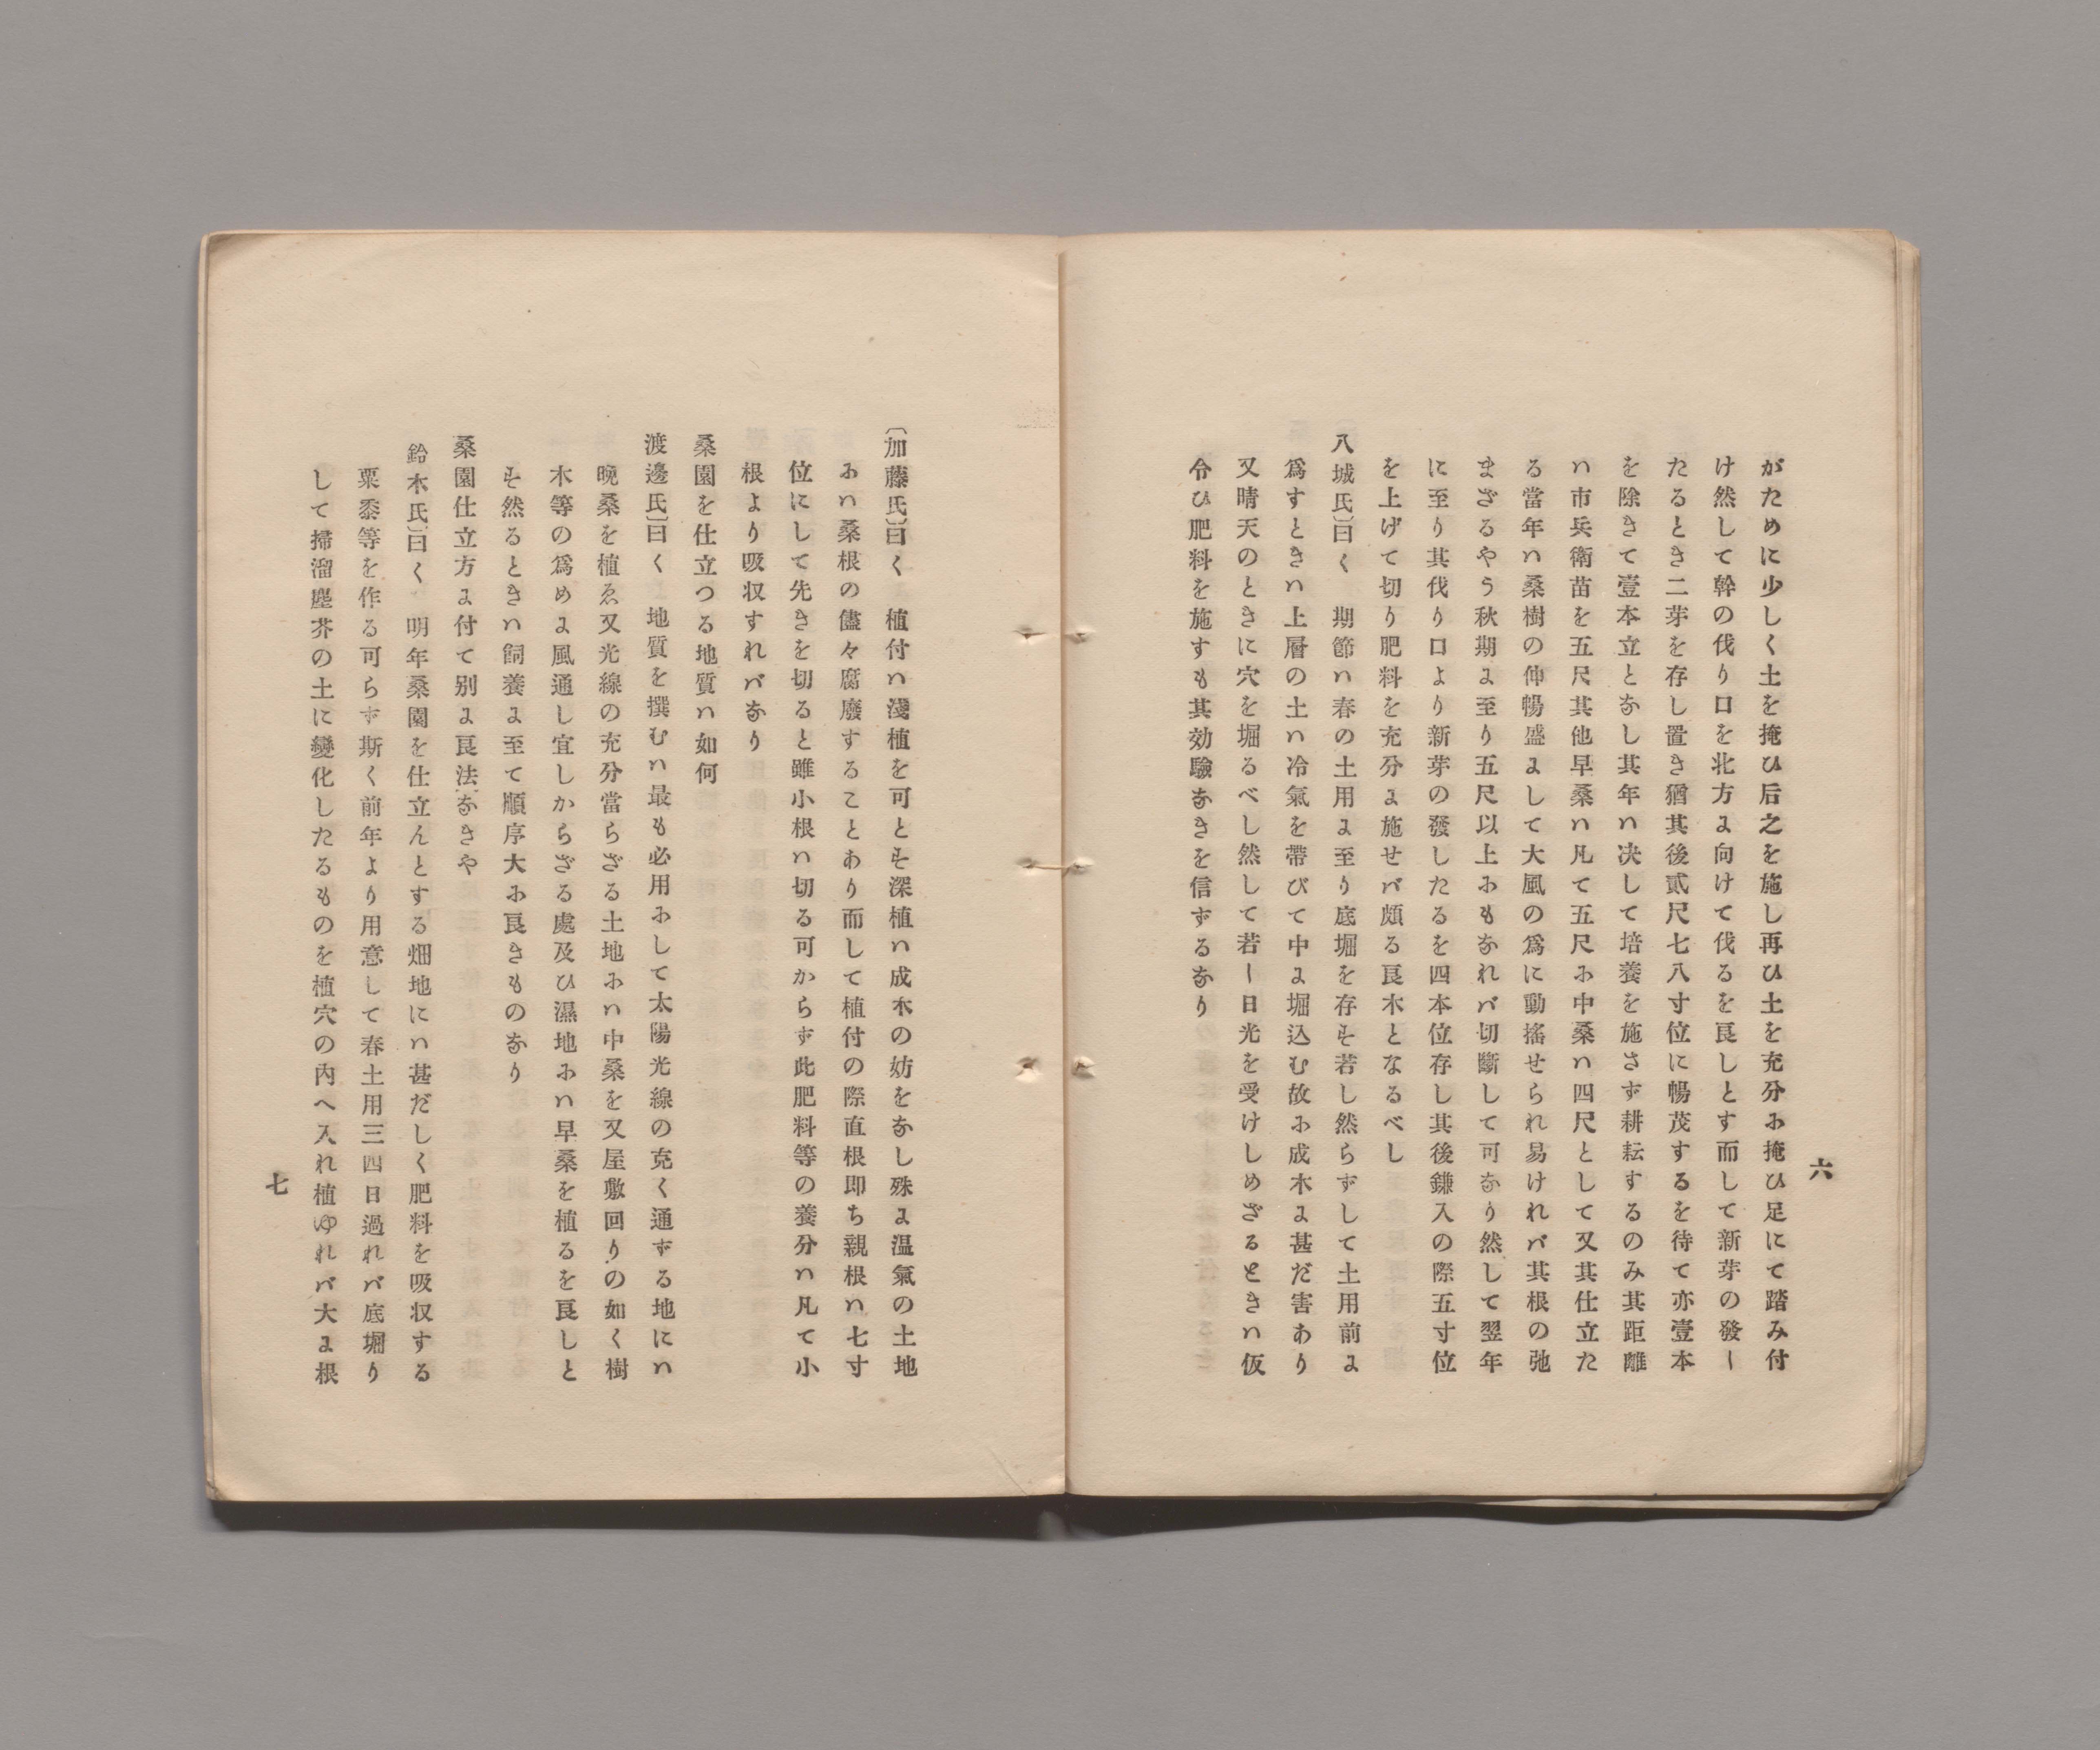 六
がために少しく土を掩ひ后之を施し再ひ土を充分に掩ひ足にて踏み付
け然して幹の伐り口を北方に向けて伐るを良しとす而して新芽の發し
たるとき二芽を存し置き猶其後貳尺七八寸位に暢茂するを待て亦壹本
を除きて壹本立となし其年ハ决して培養を施さず耕耘するのみ其距離
ハ市兵衛苗を五尺其他早桑ハ凡て五尺に中桑ハ四尺として又其仕立た
る當年ハ桑樹の伸暢盛にして大風の爲に動搖せられ易けれバ其根の弛
まざるやう秋期に至り五尺以上にもなれバ切斷して可なり然して翌年
に至り其伐り口より新芽の發したるを四本位存し其後鎌入の際五寸位
を上げて切り肥料を充分に施せバ頗る良木となるべし
八城氏〕曰く　期節ハ春の土用に至り底堀を存す若し然らずして土用前に
爲すときハ上層の土ハ冷氣を帶びて中に堀込む故に成木に甚だ害あり
又晴天のときに穴を堀るべし然して若し日光を受けしめざるときハ仮
令ひ肥料を施すも其効驗なきを信ずるなり
〔加藤氏〕曰く　植付ハ淺植を可とす深植ハ成木の妨をなし殊に温氣の土地
にハ桑根の儘々腐廢することあり而して植付の際直根即ち親根ハ七寸
位にして先きを切ると雖小根ハ切る可からず此肥料等の養分ハ凡て小
根より吸収すれバなり
桑園を仕立つる地質ハ如何
渡邊氏〕曰く　地質を撰むハ最も必用にして太陽光線の充く通ずる地にハ
晩桑を植ゑ又光線の充分當らざる土地にハ中桑を又屋敷回りの如く樹
木等の爲めに風通し宜しからざる處及ひ濕地にハ早桑を植るを良しと
す然るときハ飼養に至て順序大に良きものなり
桑園仕立方に付て別に良法なきや
鈴木氏〕曰く　明年桑園を仕立んとする畑地にハ甚だしく肥料を吸収する
粟黍等を作る可らず斯く前年より用意して春土用三四日過れバ底堀り
して掃溜塵芥の土に變化したるものを植穴の内へ入れ植ゆれバ大に根
七